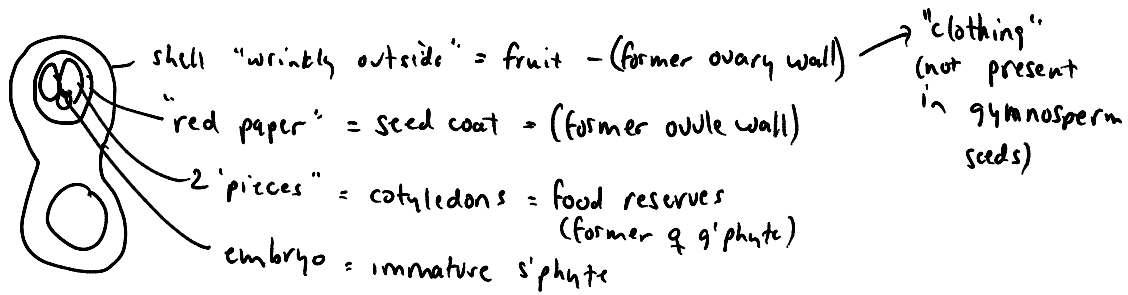 shell "wrinkly outside" = fruit - (former ovary wall) → "clothing"
(not present
in gymnosperm
seeds)
"red paper" = seed coat = (former ovule wall)
2 "pieces" = cotyledons = food reserves
(former ♀ g'phyte)
embryo = immature s'phyte